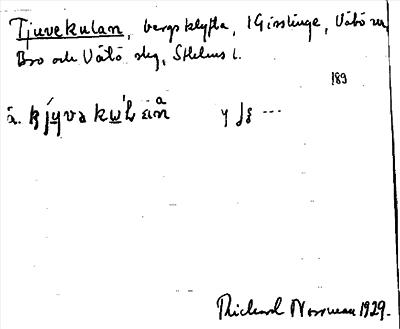 Tjuvekulan, bergsklyfta, 1 Gisslinge, Vätö sn
Bro och Vätö slg, Sthlms l.
189
Rickard Norrman 1929.